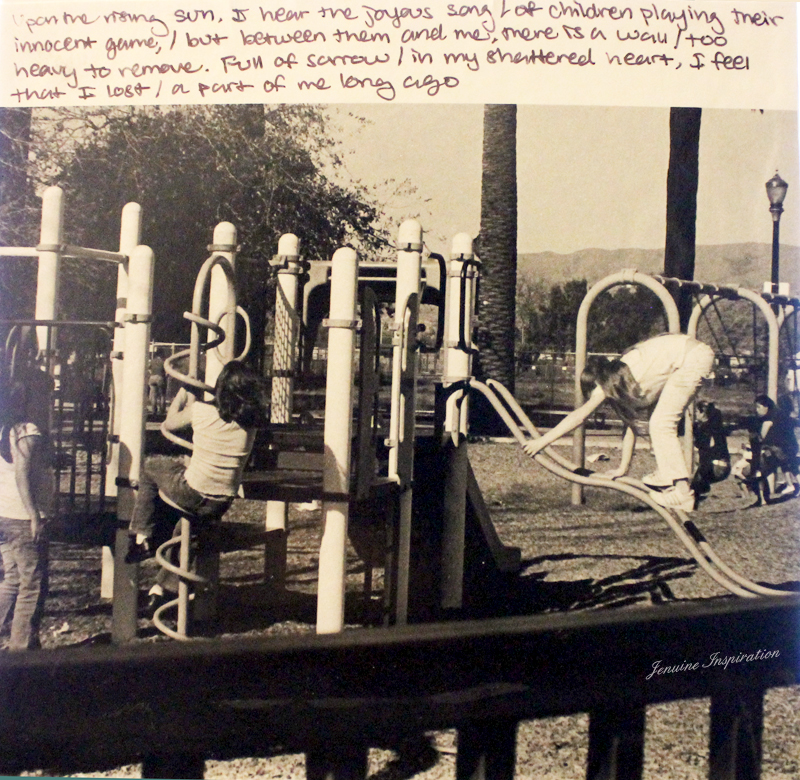 Upon the rising sun, I hear the joyous song / of children playing their
innocent game, / but between them and me, there is a wall / too
heavy to remove. Full of sorrow / in my shattered heart, I feel
that I lost / a part of me long ago
Jenuine Inspiration